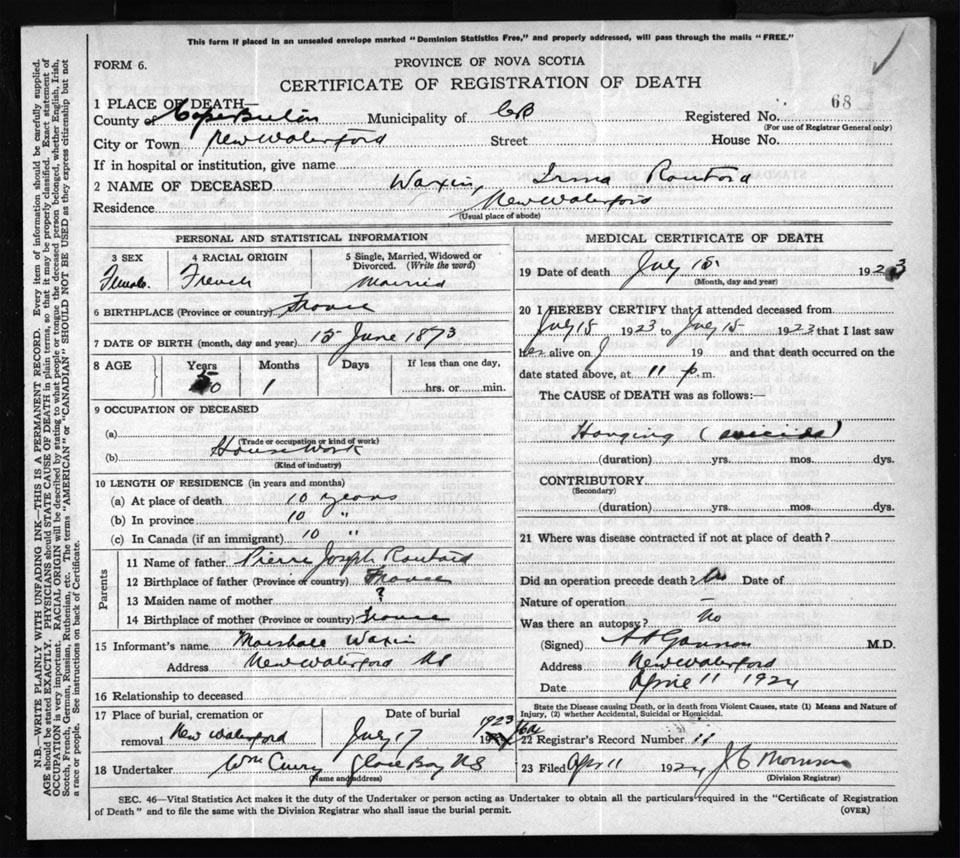 This form if placed in an unsealed envelope marked "Dominion Statistics Free," and properly addressed, will pass through the mails "FREE."
FORM 6.
PROVINCE OF NOVA SCOTIA
CERTIFICATE OF REGISTRATION OF DEATH
68
1 PLACE OF DEATH—
County of Cape Breton Municipality of CB Registered No.
(For use of Registrar General only)
City or Town New Waterford Street House No.
If in hospital or institution, give name
2 NAME OF DECEASED Waxin, Irma Routord
Residence New Waterford
(Usual place of abode)
PERSONAL AND STATISTICAL INFORMATION
3 SEX 4 RACIAL ORIGIN 5 Single, Married, Widowed or Divorced. (Write the word)
Female. French Married
6 BIRTHPLACE (Province or country) France
7 DATE OF BIRTH (month, day and year) 15 June 1873
8 AGE Years Months Days If less than one day,
50 1 hrs. or min.
9 OCCUPATION OF DECEASED
(a)
(Trade or occupation or kind of work)
(b) Housework
(Kind of industry)
10 LENGTH OF RESIDENCE (in years and months)
(a) At place of death 10 years
(b) In province 10 "
(c) In Canada (if an immigrant) 10 "
Parents
11 Name of father Pierre Joseph Routord
12 Birthplace of father (Province or country) France
13 Maiden name of mother ?
14 Birthplace of mother (Province or country) France
15 Informant's name Marshall Waxin
Address New Waterford NS
16 Relationship to deceased
17 Place of burial, cremation or removal New Waterford Date of burial July 17 1923
18 Undertaker Wm Curry Glace Bay NS
(Name and address)
MEDICAL CERTIFICATE OF DEATH
19 Date of death July 15. 1923
(Month, day and year)
20 I HEREBY CERTIFY that I attended deceased from
July 15 1923 to July 15 1923 that I last saw
her alive on 19 and that death occurred on
date stated above, at 11 p. m.
The CAUSE of DEATH was as follows:—
Hanging (suicide)
(duration) yrs. mos. dys.
CONTRIBUTORY
(Secondary)
(duration) yrs. mos. dys.
21 Where was disease contracted if not at place of death?
Did an operation precede death? No Date of
Nature of operation
Was there an autopsy? No
(Signed) M.D.
Address New Waterford
Date April 11 1924
State the Disease causing Death, or in death from Violent Causes, state (1) Means and Nature of
Injury, (2) whether Accidental, Suicidal or Homicidal.
22 Registrar's Record Number 11
23 Filed Apr 11 1924 J C Morrison
(Division Registrar)
SEC. 46—Vital Statistics Act makes it the duty of the Undertaker or person acting as Undertaker to obtain all the particulars required in the "Certificate of Registration
of Death" and to file the same with the Division Registrar who shall issue the burial permit. (OVER)
N.B.—WRITE PLAINLY WITH UNFADING INK—THIS IS A PERMANENT RECORD. Every item of information should be carefully supplied.
AGE should be stated EXACTLY. PHYSICIANS should STATE CAUSE OF DEATH in plain terms, so that it may be properly classified. Exact statement of
OCCUPATION is very important. RACIAL ORIGIN will be described by stating to what people or tongue the deceased person belonged, whether English, Irish,
Scotch, French, German, Russian, Ruthenian, etc. The terms "AMERICAN" or "CANADIAN" SHOULD NOT BE USED as they express citizenship but not
a race or people. See instructions on back of Certificate.